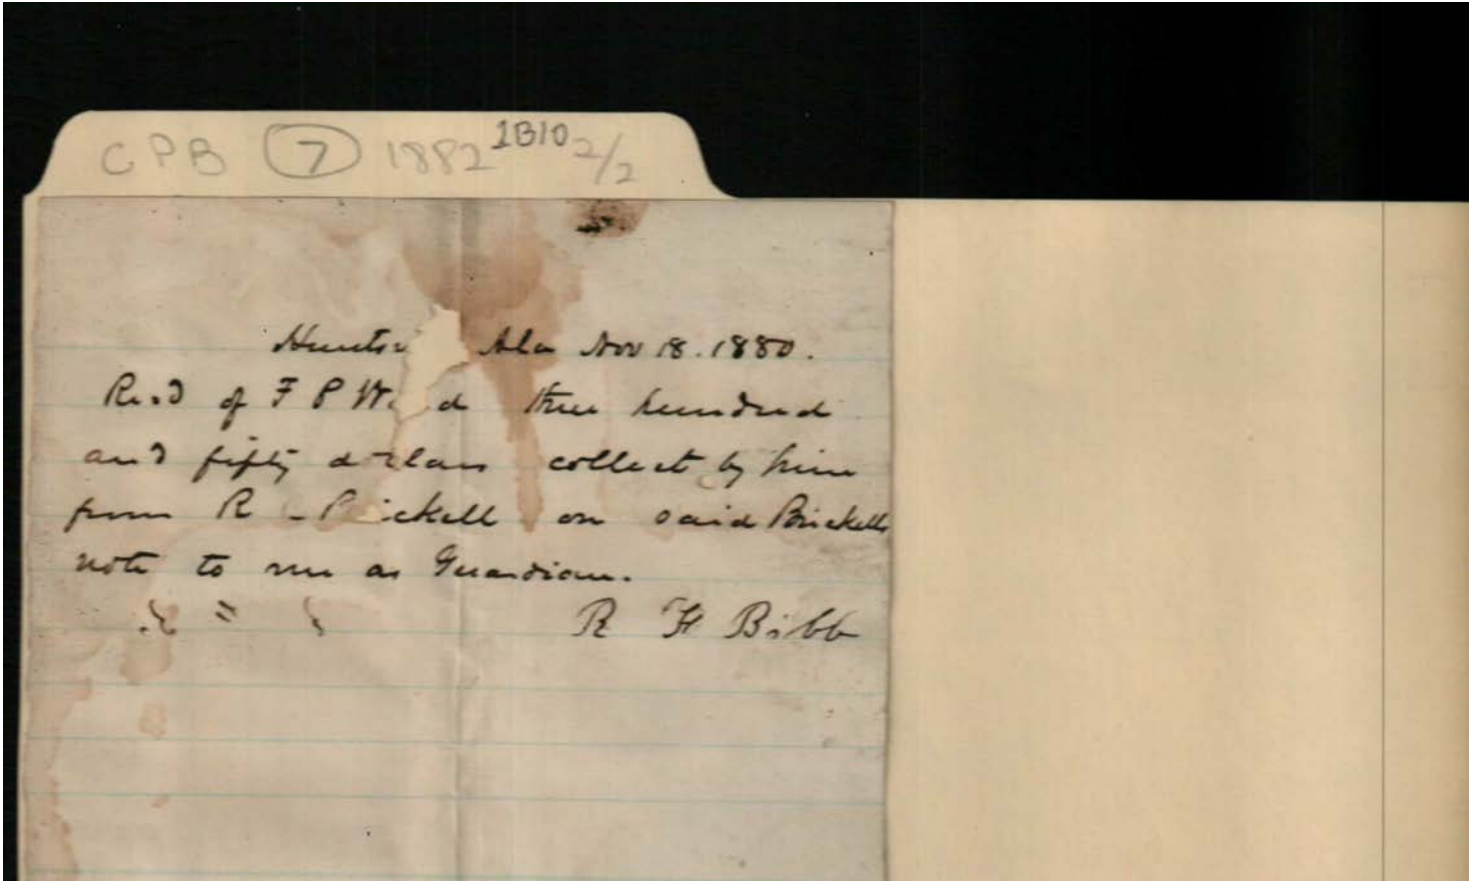 CPB 7 1882 1B10 2/2
Hunts Ala Nov 18. 1880.
Recd of F P W d three hundred
and fifty dollars collect by him
from R Brickell on said Brickells
note to me as Guardian.
R H Bibb